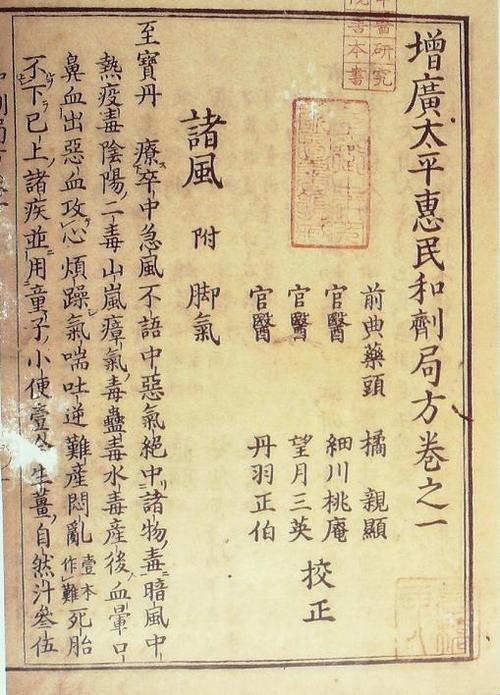 增廣太平惠民和劑局方卷之一
前典藥頭 橘 親顯
官醫 細川桃庵
官醫 望月三英
官醫 丹羽正伯
校正
諸風 附 脚氣
至寶丹 療卒中急風不語中惡氣絕中諸物毒暗風中
熱疫毒陰陽二毒山嵐瘴氣毒蠱毒水毒產後血暈口
鼻血出惡血攻心煩躁氣喘吐逆難產悶亂壹本作難死胎
不下已上諸疾並用童子小便壹合生薑自然汁叄伍